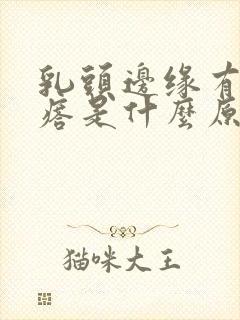 乳頭邊缘有
痞是什麼原
猫咪大王